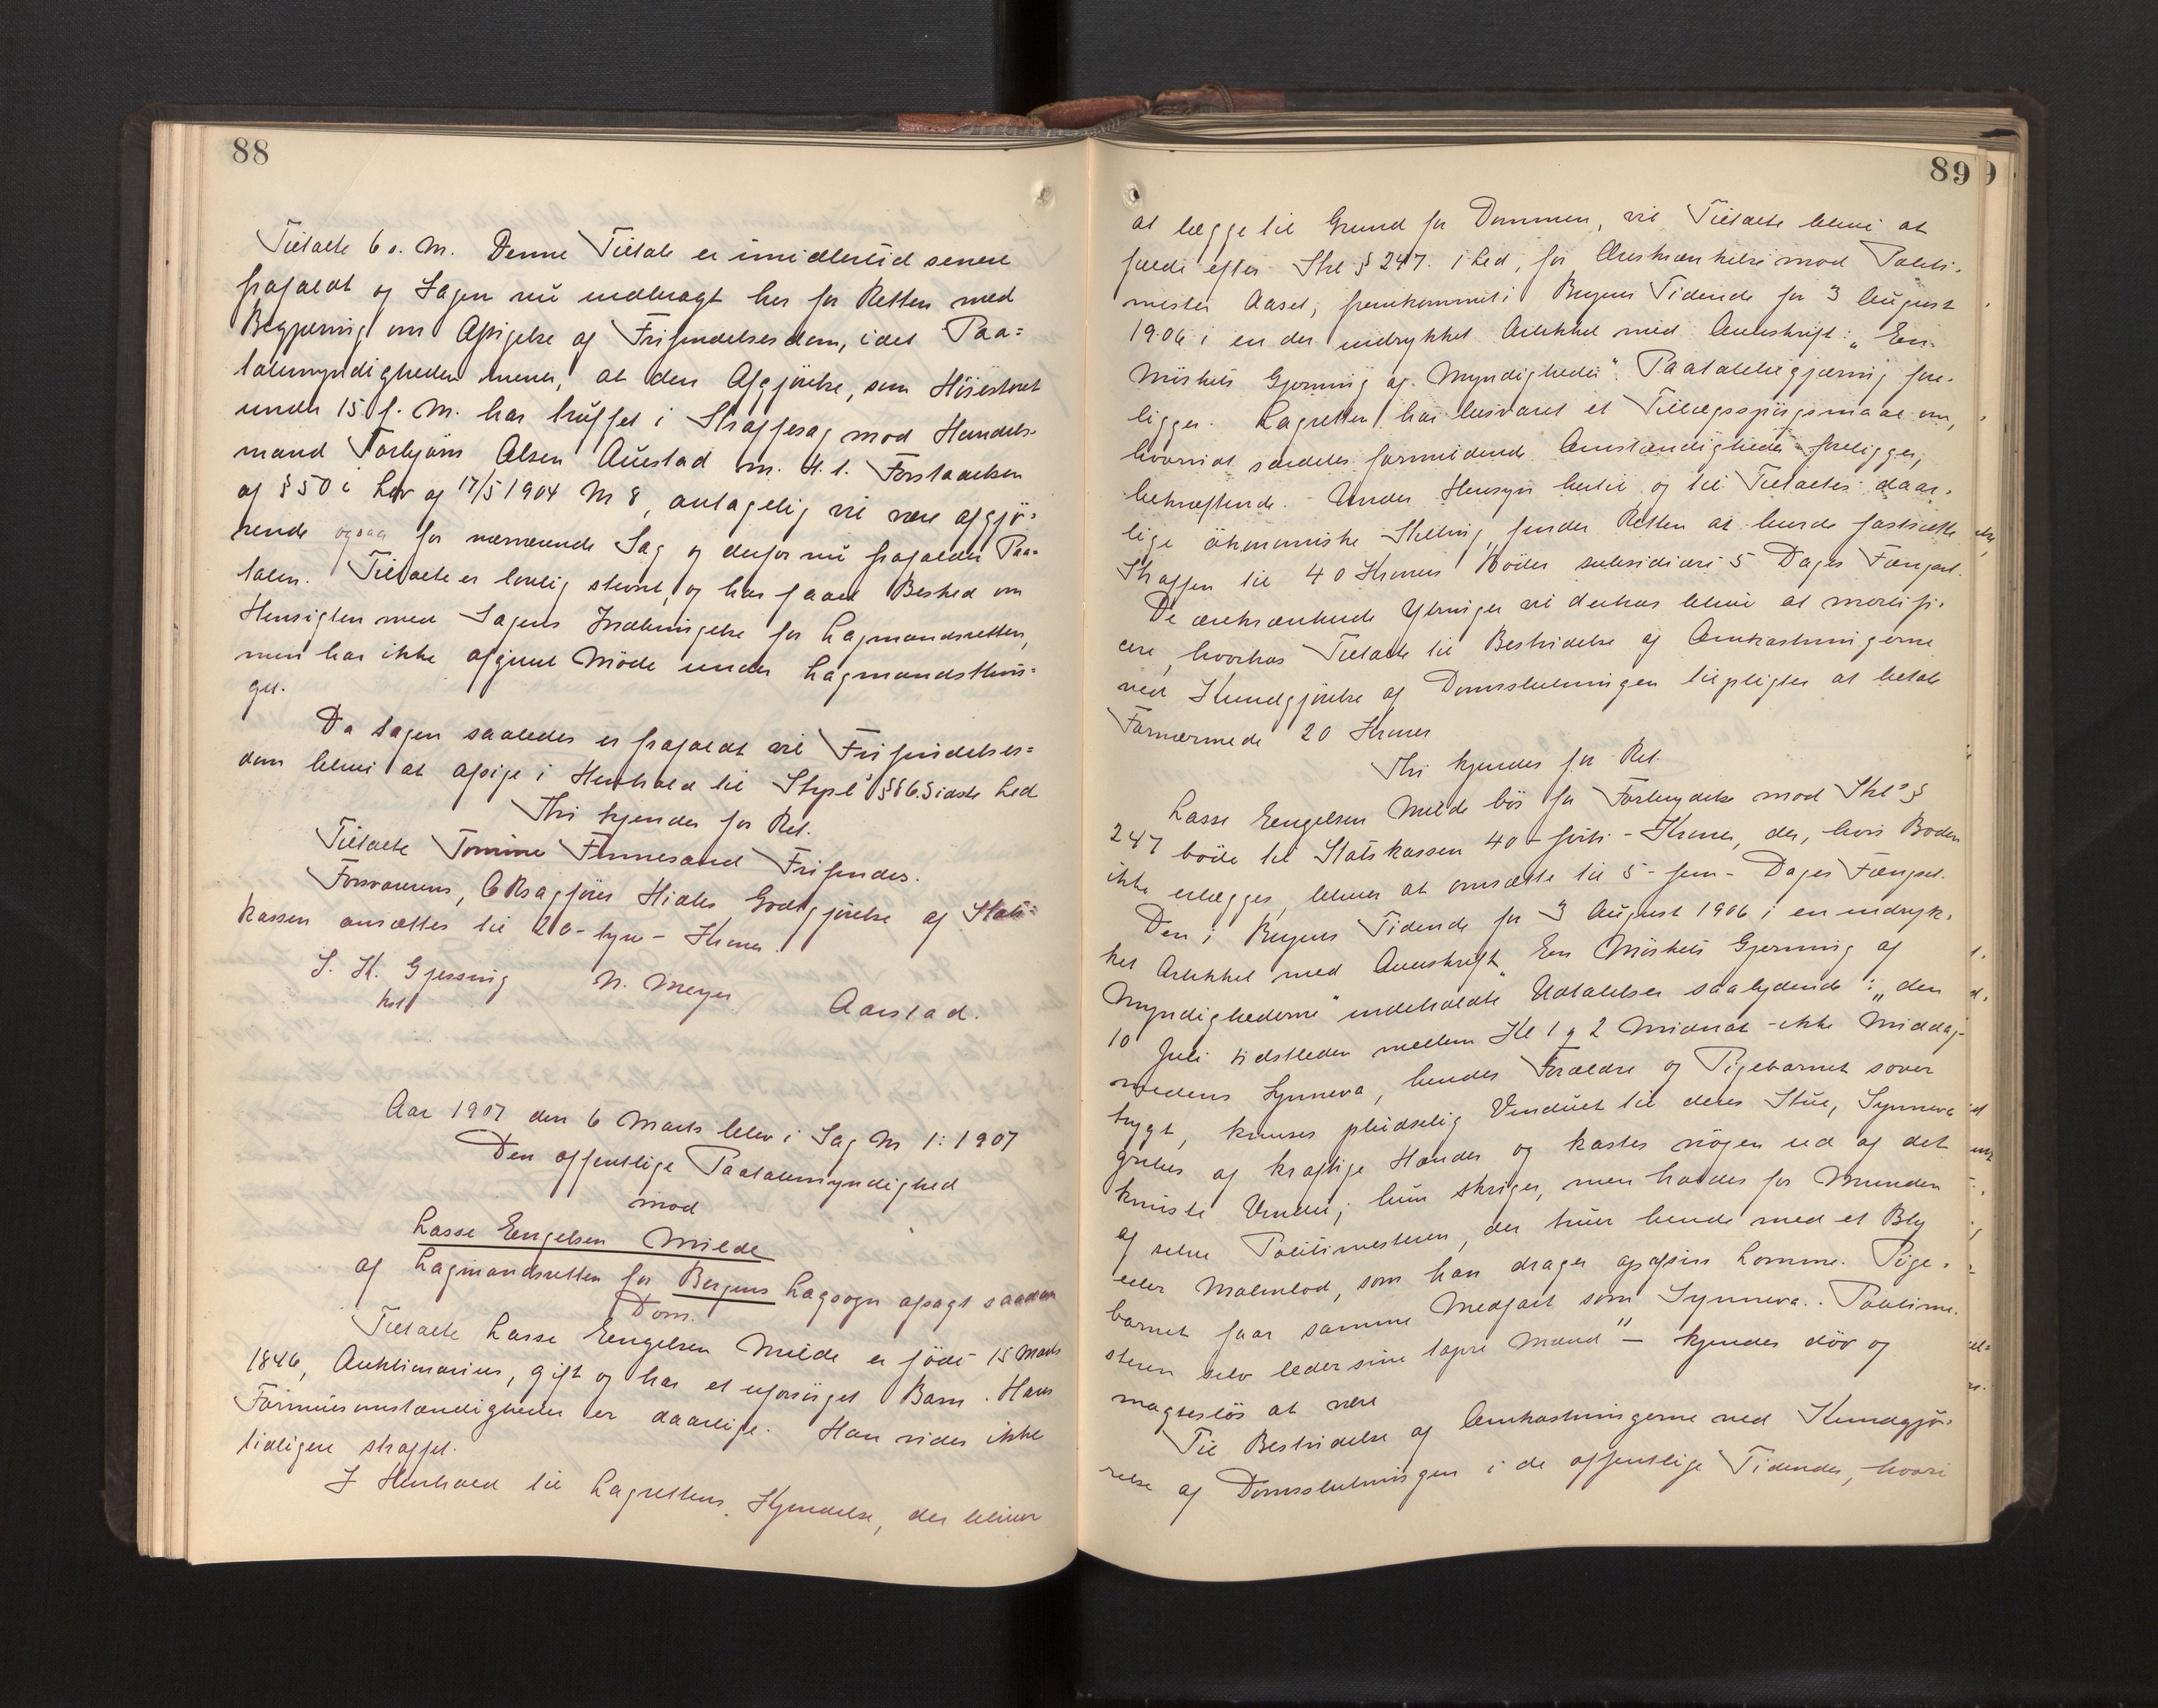 88
Tiltalte 6 s. M. Denne Tiltale er imidlertid senere
frafaldt og Sagen nu indbragt her for Retten med
Begjæring om Afsigelse af Frifindelsesdom, idet Paa=
talemyndigheden mener, at den Afgjörelse, som Höiesteret
under 15 f. M. har truffet i Straffesag mod Handels-
mand Torbjörn Olsen Austad m. H. t. Forstaaelsen
af § 50 i Lov af 17/5 1904 No 8, antagelig vil være afgjö-
rende ogsaa for nærværende Sag og derfor nu frafalder Paa-
talen. Tiltalte er lovlig stevnt, og har faaet Besked om
Hensigten med Sagens Indbringelse for Lagmandsretten,
men har ikke afgivet Möde under Lagmandsthin-
get.
Da Sagen saaledes er frafaldt vil Frifindelses=
dom blive at afsige i Henhold til Strpl's § 86 sidste Led
Thi kjendes for Ret.
Tiltalte Tomine Finnesand Frifindes.
Forsvarerens, O.R.sagförer Hialss Godtgjörelse af Stats=
kassen ansættes til 20 - tyve - Kroner.
S. K. Gjessing N. Meyer Aarstad.
kst
Aar 1907 den 6 Marts blev i Sag No 1: 1907
Den offentlige Paatalemyndighed
mod
Lasse Engelsen Milde
af Lagmandsretten for Bergens Lagsogn afsagt saadan
Dom.
Tiltalte Lasse Engelsen Milde er födt 15 Marts
1846, Auktionarius, gift og har et uforsörget Barn. Hans
Formuesomstændigheder er daarlige. Han vides ikke
tidligere straffet.
I Henhold til Lagrettens Kjendelse, der bliver
89
at lægge til Grund for Dommen, vil Tiltalte blive at
fælde efter Strl § 247. 1 Led, for Æreskrænkelse mod Politi-
mester Aasel, fremkommet i Bergens Tidende for 3 August
1906 i en der indrykket Artikkel med Overskrift: „En
Mörkets Gjerning af Myndigheder". Paatalebegjæring fore-
ligger. Lagretten har besvaret et Tillægsspörgsmaal om,
hvorvidt særdeles formildende Omstændigheder foreligger,
bekræftende. Under Hensyn hertil og til Tiltaltes daar-
lige ökonomiske Stilling, finder Retten at burde fastsætte
Straffen til 40 Kroners Böder subsidiært 5 Dages Fængsel.
De ærekrænkende Ytringer vil derhos blive at mortifi-
cere, hvorhos Tiltalte til Bestridelse af Omkostningerne
ved Kundgjörelse af Domsslutningen tilpligtes at betale
Fornærmede 20 Kroner
Thi kjendes for Ret.
Lasse Engelsen Milde bör for Forbrydelse mod Strl's §
247 böde til Statskassen 40 - firti - Kroner, der, hvis Boden
ikke erlægges, bliver at omsætte til 5 - fem - Dages Fængsel.
Den i Bergens Tidende for 3 August 1906 i en indryk-
ket Artikkel med Overskrift „En Mörkets Gjerning af
Myndighederne" indeholdte Udtalelser saalydende: „den
10 Juli sidstleden mellem Kl 1 og 2 Midnat - ikke Middag-
medens Synneva, hendes Forældre og Pigebarnet sover
trygt, knuses pludselig Vinduet til deres Stue, Synneva
gribes af kraftige Hænder og kastes nögen ud af det
knuste Vindu; hun skriger, men holdes for Munden
af selve Politimesteren, der truer hende med et Bly
eller Malmlod, som han drager op af sin Lomme. Pige-
barnet faar samme Medfart som Synneva. Politime-
steren selv leder sine tapre Mænd" - kjendes död og
magteslös at være
Til Bestridelse af Omkostningerne ved Kundgjö-
relse af Domsslutningen i de offentlige Tidender, hvori